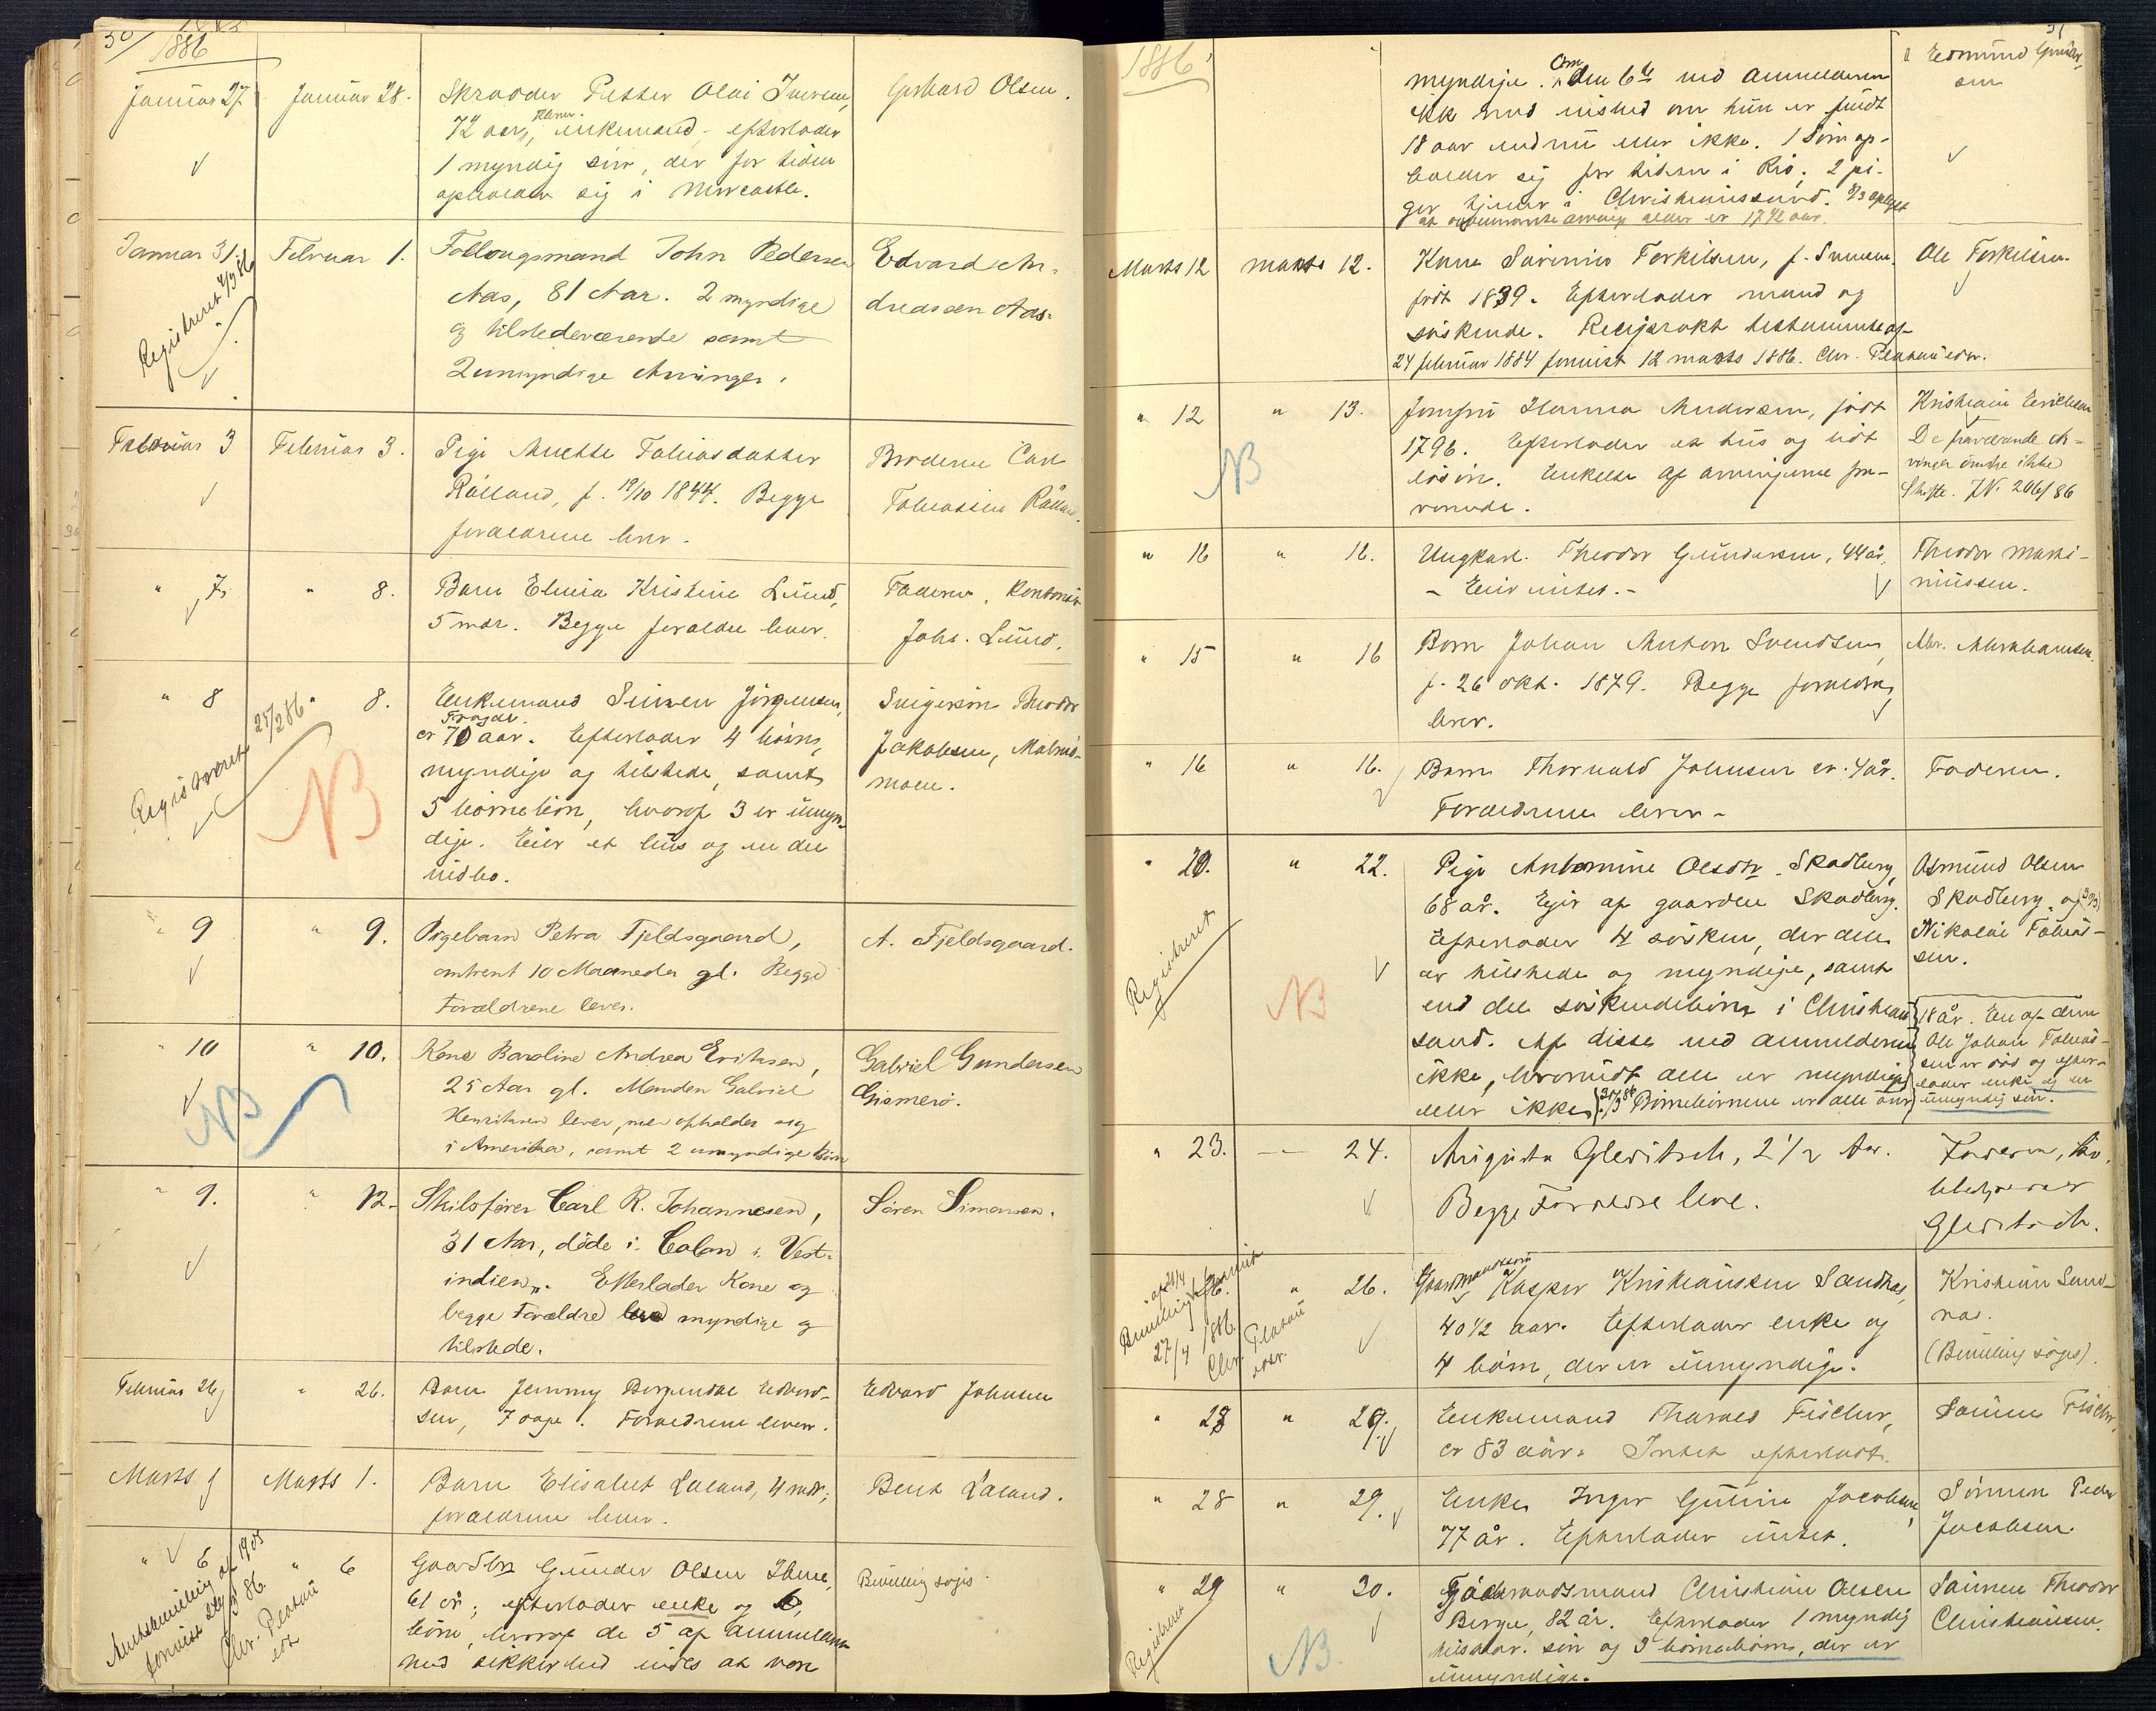 30
1886
Januar 27. Januar 28. Skræder Petter Olai Iversen, Gerhard Olsen.
72 aar, enkemand, efterlader
1 myndig søn, der for tiden
opholder sig i Newcastle.
Januar 31. Februar 1. Follougsmand John Pedersen Edvard An-
Registreret
Aas, 81 Aar. 2 myndige dreassen Aas.
og tilstedeværende samt
2 umyndige Arvinger.
Februar 3 Februar 3. Pige Anette Tobiasdatter Broderen Carl
f. 19/10 1844. Begge Tobiassen
forældrene lever.
" 7. " 8. Barn Kristine Lund, Faderen,
5 mdr. Begge forældre lever. Johs. Lund.
" 8 " 8. Enkemand Simen Jørgensen, Svigersøn Theodor
Registreret 25/2 86.
NB
er 70 aar. Efterlader 4 børn, Jakobsen,
myndige og tilstede, samt
5 børnebørn, hvoraf 3 er umyn-
dige. Eier et hus og en del
indbo.
" 9 " 9. Pigebarn Petra Fjeldsgaard, A. Fjeldsgaard.
omtrent 10 Maaneder gl. Begge
Forældrene lever.
" 10 " 10. Kone Andrea Eriksen, Gabriel Gundersen
NB
25 Aar gl. Manden Gabriel Gismerø.
Henriksen lever, men opholder sig
i Amerika, samt 2 umyndige Børn
" 9. " 12. Skibsfører Carl R. Johannesen, Søren Simonsen.
31 Aar, døde i Colon i Vest-
indien. Efterlader Kone og
begge Forældre myndige og
tilstede.
Februar 26 " 26. Barn Jenny Edvard- Edvard Johnsen
sen, 7 dage. Forældrene lever.
Marts 1 Marts 1. Barn Elisabet Laland, 4 mdr; Bent Laland.
forældrene lever.
" 6 " 6 Gaardbr. Gunder Olsen Bevilling søges.
Chr. Platou
61 år; efterlader enke og 6
børn, hvoraf de 5 af anmelderen
med sikkerhed vides at være
31
1886
myndige. Om den 6te ved anmelderen
ikke med vished om hun er fuldt
18 aar endnu eller ikke. 1 Søn op-
holder sig for tiden i Rio, 2 pi-
ger tjener i Christianssand. 8/3 oplyst
at arvings alder er 17 1/2 aar.
Marts 12 Marts 12. Kone Torkilsen, f. Ole Torkilsen.
født 1839. Efterlader mand og
søskende. Reciprokt testamente af
24 februar 1884 forevist 12 marts 1886. Chr. Platou
" 12 " 13. Jomfru Hanna Andersen, født
NB
1796. Efterlader et hus og lidt De fraværende Ar-
løsøre. Enkelte af arvingerne fra- vinger ønske ikke
værende. Skifte. JN. 206/86
" 16 " 16. Ungkarl Theodor Gundersen, 44 år. Theodor Marti-
- Eier intet. - niussen.
" 15 " 16 Barn Johan Anton Svendsen, Abr. Abrahamsen.
f. 26 okt. 1879. Begge forældre
lever.
" 16 " 16. Barn Thorvald Johnsen er 4 år. Faderen.
Forældrene lever -
" 20. " 22. Pige Antomine Olsdtr. Skadberg, Osmund Olsen
Registreret
NB
68 år. Eier af gaarden Skadberg. Skadberg, og
Efterlader 4 søsken, der alle Nikolai Tobias-
er tilstede og myndige, samt sen.
end del søskendebørn i Christians-
sand. Af disse ved anmelderen
ikke, hvorvidt alle er myndige
eller ikke. Børnebørnene er alle over
18 år. En af dem
Ole Johan Tobias-
sen er død og efter-
lader enke og en
umyndig søn.
" 23. - 24. Augusta Gleditsch, 2 1/2 Aar. Faderen,
Begge Forældre leve. Gleditsch.
" 26. " 26. Kasper Kristiansen Kristian
Bevilling 27/4 1886. Chr. Platou
40 1/2 aar. Efterlader enke og
4 børn, der er umyndige. (Bevilling søges).
" 28 " 29. Enkemand Fischer, Fischer
er 83 aar. Intet efterladt.
" 28 " 29. Enke Inger Jacobsen, Sønnen Peder
77 år. Efterlader intet. Jacobsen.
" 29 " 30. Christian Olsen Sønnen Theodor
Registreret
NB.
Berge, 82 år. Efterlader 1 myndig Christiansen.
søn og 3 børnebørn, der er
umyndige.